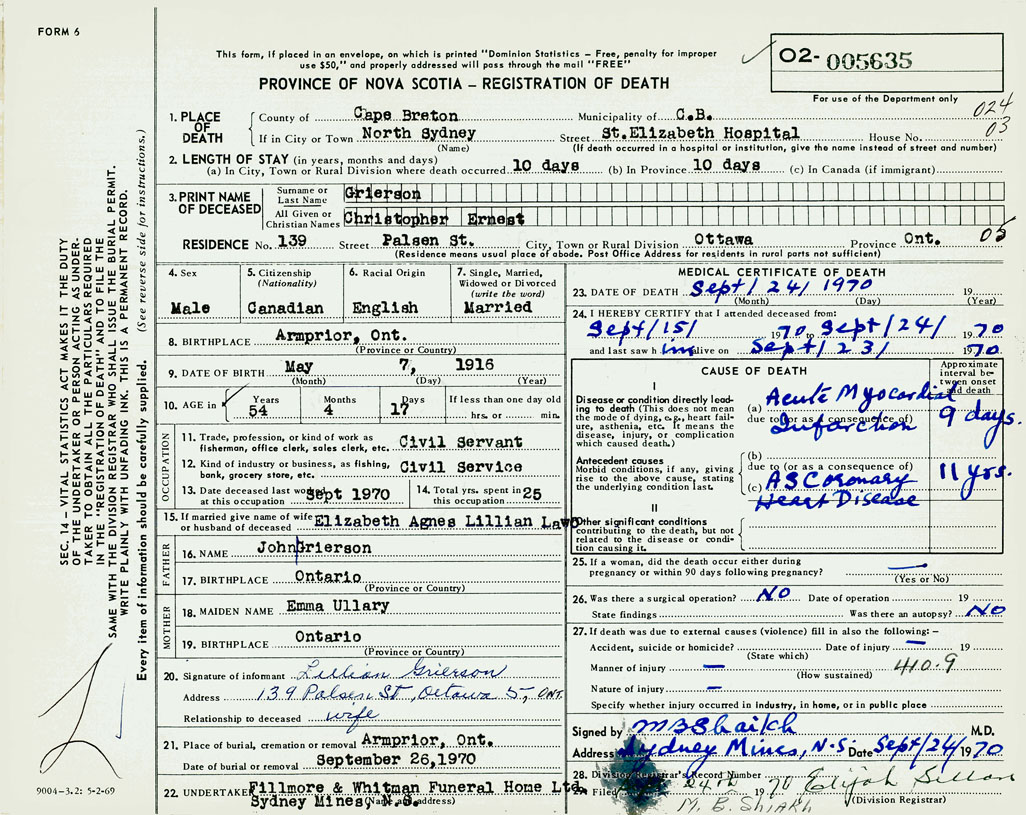 FORM 6
This form, if placed in an envelope, on which is printed "Dominion Statistics – Free, penalty for improper
use $50," and properly addressed will pass through the mail "FREE"
PROVINCE OF NOVA SCOTIA – REGISTRATION OF DEATH
O2- 005635
For use of the Department only
024
03
SEC. 14 – VITAL STATISTICS ACT MAKES IT THE DUTY
OF THE UNDERTAKER OR PERSON ACTING AS UNDER-
TAKER TO OBTAIN ALL THE PARTICULARS REQUIRED
IN THE "REGISTRATION OF DEATH" AND TO FILE THE
SAME WITH THE DIVISION REGISTRAR WHO SHALL ISSUE THE BURIAL PERMIT.
WRITE PLAINLY WITH UNFADING INK. THIS IS A PERMANENT RECORD.
Every item of information should be carefully supplied. (See reverse side for instructions.)
9004–3.2: 5-2-69
1. PLACE OF DEATH
County of Cape Breton Municipality of C.B.
If in City or Town North Sydney Street St.Elizabeth Hospital House No.
(Name) (If death occurred in a hospital or institution, give the name instead of street and number)
2. LENGTH OF STAY (in years, months and days)
(a) In City, Town or Rural Division where death occurred 10 days (b) In Province 10 days (c) In Canada (if immigrant)
3. PRINT NAME OF DECEASED
Surname or Last Name Grierson
All Given or Christian Names Christopher Ernest
RESIDENCE No. 139 Street Palsen St. City, Town or Rural Division Ottawa Province Ont. 05
(Residence means usual place of abode. Post Office Address for residents in rural parts not sufficient)
4. Sex
Male
5. Citizenship
(Nationality)
Canadian
6. Racial Origin
English
7. Single, Married,
Widowed or Divorced
(write the word)
Married
8. BIRTHPLACE Armprior, Ont.
(Province or Country)
9. DATE OF BIRTH May 7, 1916
(Month) (Day) (Year)
10. AGE in
Years Months Days If less than one day old
54 4 17 hrs. or min.
OCCUPATION
11. Trade, profession, or kind of work as
fisherman, office clerk, sales clerk, etc. Civil Servant
12. Kind of industry or business, as fishing,
bank, grocery store, etc. Civil Service
13. Date deceased last worked
at this occupation Sept 1970
14. Total yrs. spent in
this occupation 25
15. If married give name of wife
or husband of deceased Elizabeth Agnes Lillian Law
FATHER
16. NAME John Grierson
17. BIRTHPLACE Ontario
(Province or Country)
MOTHER
18. MAIDEN NAME Emma Ullary
19. BIRTHPLACE Ontario
(Province or Country)
20. Signature of informant Lillian Grierson
Address 139 Palsen St, Ottawa 5, ONT.
Relationship to deceased wife
21. Place of burial, cremation or removal Armprior, Ont.
Date of burial or removal September 26,1970
22. UNDERTAKER Fillmore & Whitman Funeral Home Ltd.
Sydney Mines N.S.
(Name and address)
MEDICAL CERTIFICATE OF DEATH
23. DATE OF DEATH Sept/ 24/ 1970 19
(Month) (Day) (Year)
24. I HEREBY CERTIFY that I attended deceased from:
Sept/15/ 1970 to Sept/24/ 1970
and last saw him alive on Sept/23/ 1970
CAUSE OF DEATH
Approximate
interval be-
tween onset
and death
I
Disease or condition directly lead-
ing to death (This does not mean
the mode of dying, e.g., heart fail-
ure, asthenia, etc. It means the
disease, injury, or complication
which caused death.)
(a) Acute Myocardial
due to (or as a consequence of)
Infarction 9 days.
Antecedent causes
Morbid conditions, if any, giving
rise to the above cause, stating
the underlying condition last.
(b)
due to (or as a consequence of)
(c) AS Coronary 11 yrs.
Heart Disease
II
Other significant conditions
contributing to the death, but not
related to the disease or condi-
tion causing it.
25. If a woman, did the death occur either during
pregnancy or within 90 days following pregnancy? —
(Yes or No)
26. Was there a surgical operation? NO Date of operation 19
State findings Was there an autopsy? NO
27. If death was due to external causes (violence) fill in also the following: –
Accident, suicide or homicide? Date of injury — 19
(State which)
Manner of injury — 410.9
(How sustained)
Nature of injury —
Specify whether injury occurred in industry, in home, or in public place
Signed by M B Shaikh M.D.
Address Sydney Mines, N-S. Date Sept/24/1970
28. Division Registrar's Record Number
29. Filed 24th 1970
(Division Registrar)
M. B. SHIAKH